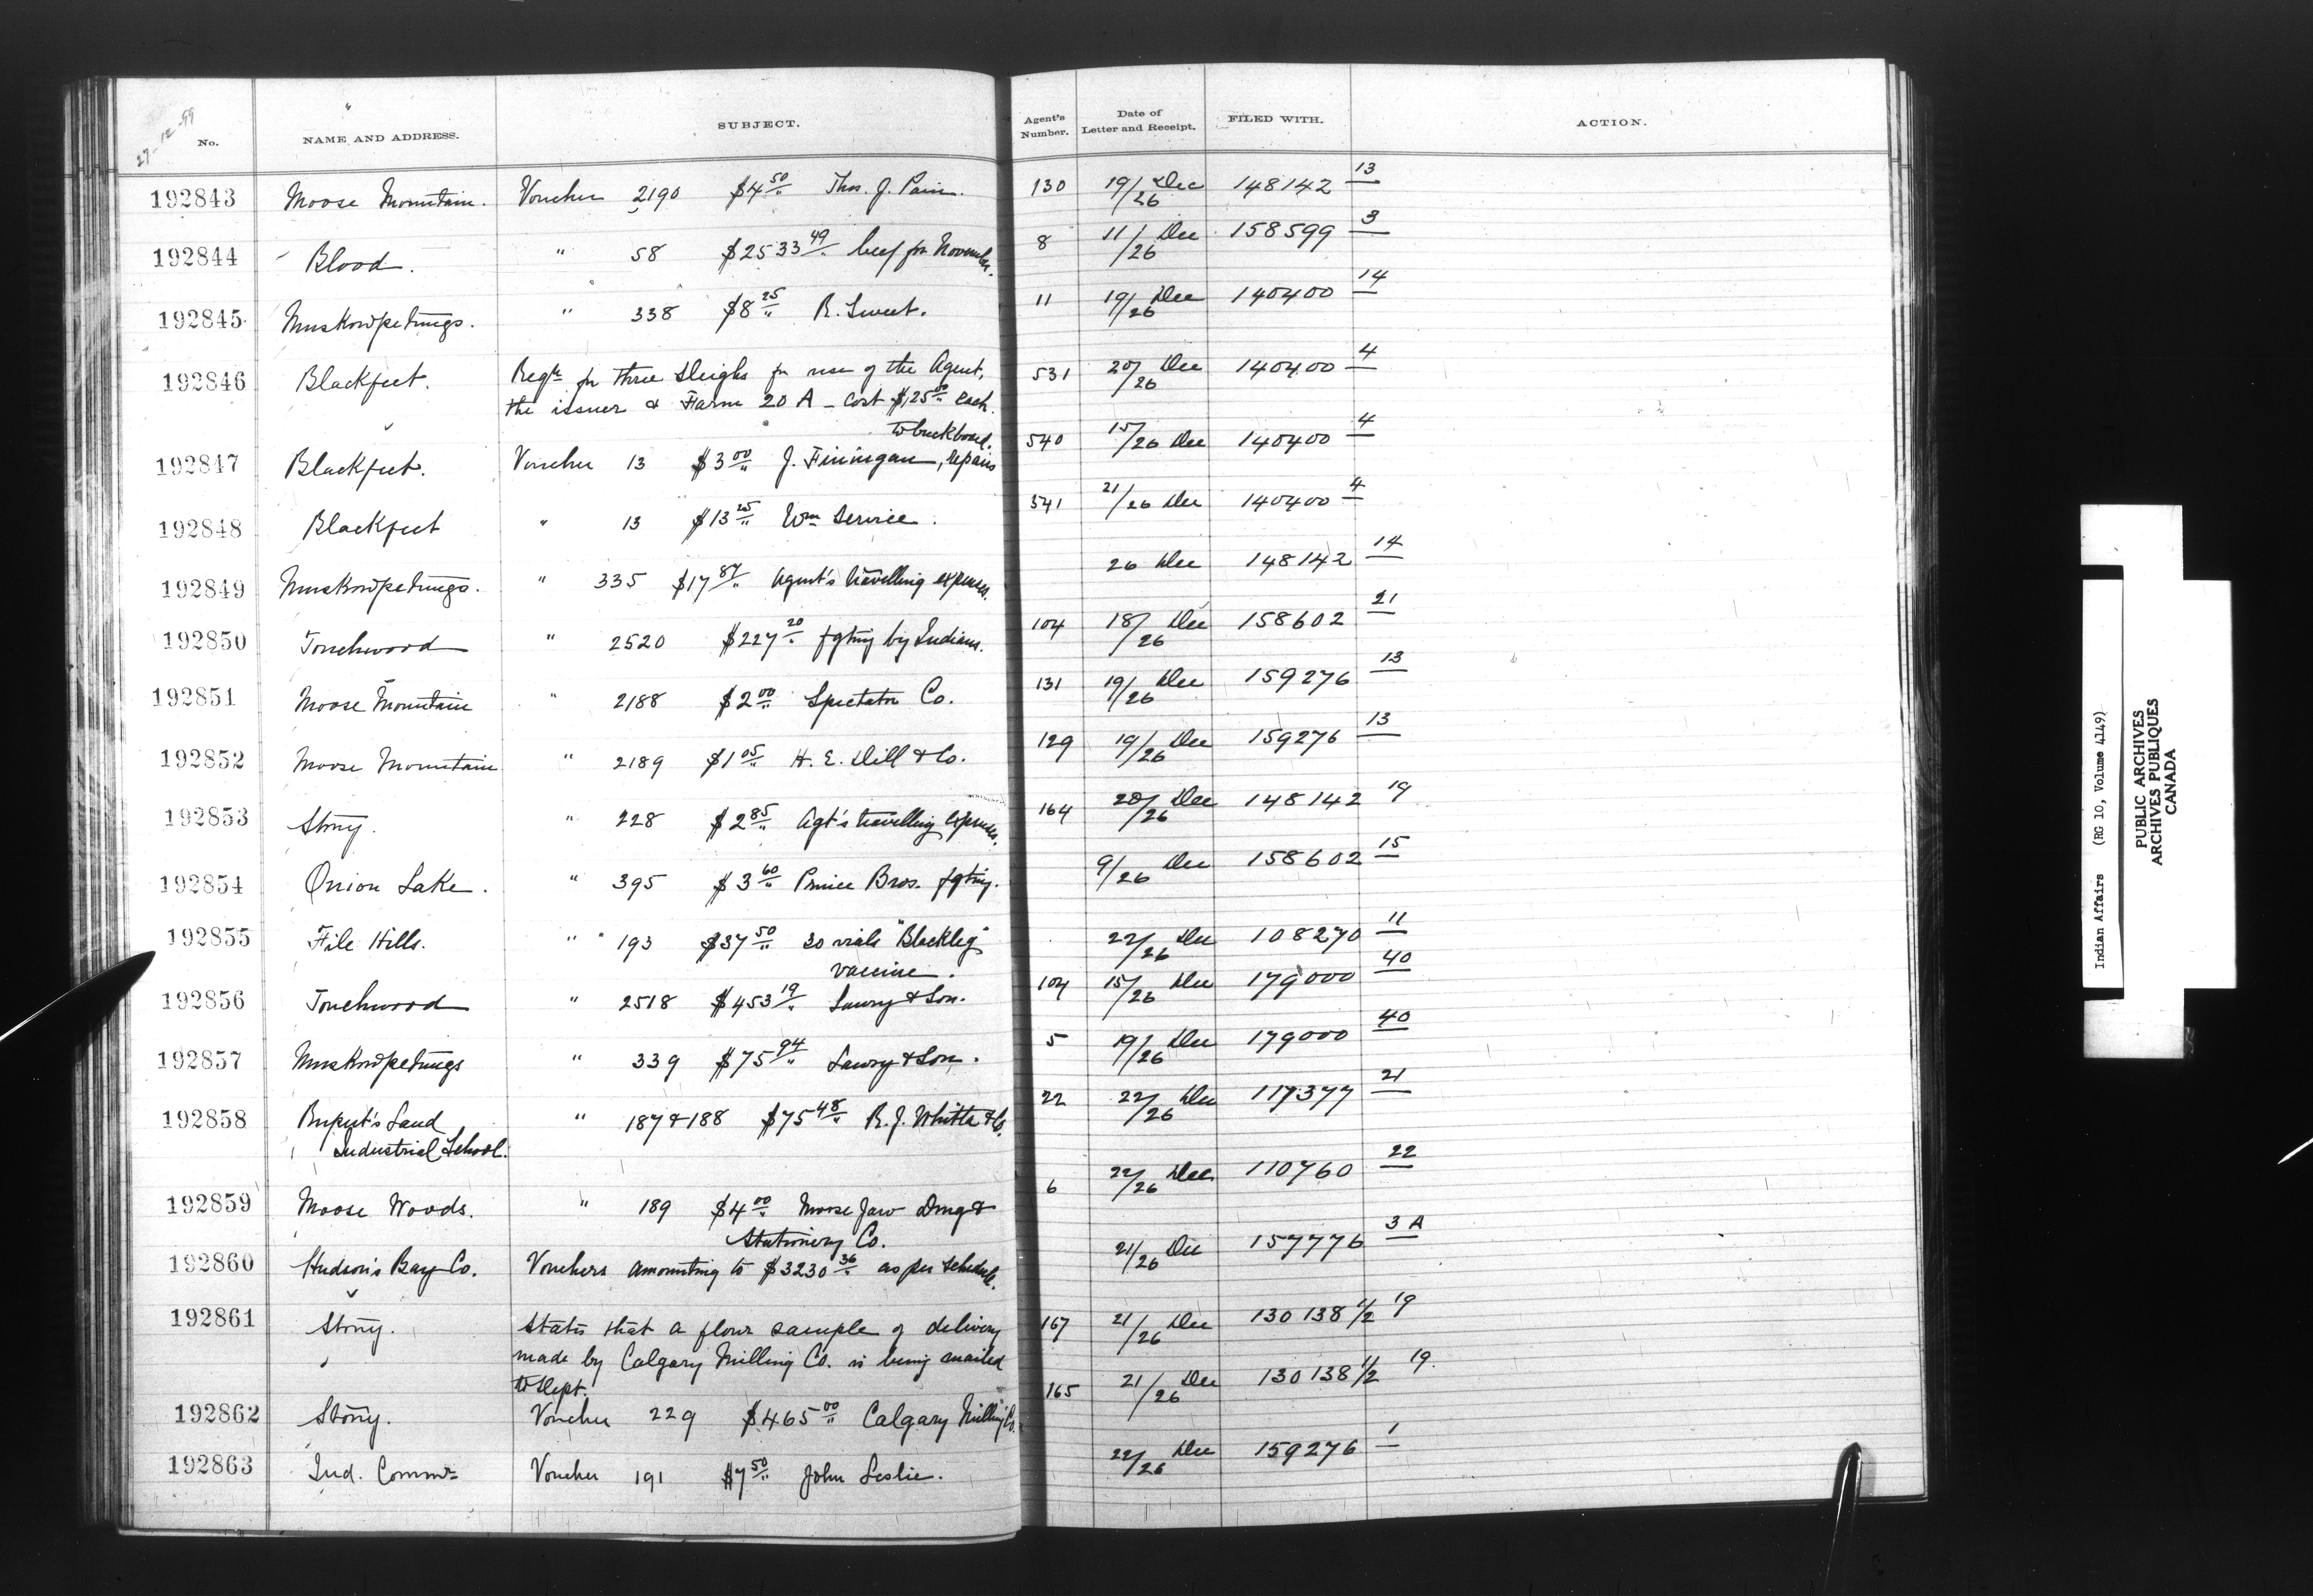 27-12-99
No. NAME AND ADDRESS. SUBJECT. Agent's Number. Date of Letter and Receipt. FILED WITH. ACTION.
192843 Moose Mountain. Voucher 2190 $4 50/" Thos. J. 130 19/26 Dec 148142 13
192844 Blood. " 58 $2533 49/" beef for November. 8 11/26 Dec 158599 3
192845 Muskowpetungs. " 338 $8 25/" R. Sweet. 11 19/26 Dec 140400 14
192846 Blackfeet. Reqtn for three sleighs for use of the Agent, 531 20/26 Dec 140400 4
the issuer & Farm 20 A - cost $125 00/" each.
192847 Blackfeet. Voucher 13 $3 00/" J. Finnigan, repairs to buckboard. 540 15/26 Dec 140400 4
192848 Blackfeet " 13 $13 25/" Wm Service. 541 21/26 Dec 140400 4
192849 Muskowpetungs. " 335 $17 87/" Agent's travelling expenses. 26 Dec 148142 14
192850 Touchwood " 2520 $227 20/" fgting by Indians. 104 18/26 Dec 158602 21
192851 Moose Mountain " 2188 $2 00/" Spectator Co. 131 19/26 Dec 159276 13
192852 Moose Mountain " 2189 $1 05/" H. E. Dill & Co. 129 19/26 Dec 159276 13
192853 Stony. " 228 $2 85/" Agt's travelling expenses. 164 20/26 Dec 148142 19
192854 Onion Lake. " 395 $3 60/" Prince Bros. fgting. 9/26 Dec 158602 15
192855 File Hills. " 193 $37 50/" 30 vials "Blackleg" 22/26 Dec 108270 11
vaccine.
192856 Touchwood " 2518 $453 19/" Lawry & Son. 104 15/26 Dec 179000 40
192857 Muskowpetungs " 339 $75 94/" Lawry & Son. 5 19/26 Dec 179000 40
192858 Rupert's Land " 187 & 188 $75 48/" R. J. Whitla & Co. 22 22/26 Dec 117377 21
Industrial School.
192859 Moose Woods. " 189 $4 00/" Moose Jaw Drug & 6 22/26 Dec 110760 22
Stationery Co.
192860 Hudson's Bay Co. Vouchers amounting to $3230 36/" as per schedule. 21/26 Dec 157776 3 A
192861 Stony. States that a flour sample of delivery 167 21/26 Dec 130138 1/2 19
made by Calgary Milling Co. is being mailed
to Dept.
192862 Stony. Voucher 229 $465 00/" Calgary Milling Co. 165 21/26 Dec 130138 1/2 19.
192863 Ind. Commr Voucher 191 $7 50/" John Leslie. 22/26 Dec 159276 1
Indian Affairs (RG 10, Volume 4149)
PUBLIC ARCHIVES
ARCHIVES PUBLIQUES
CANADA